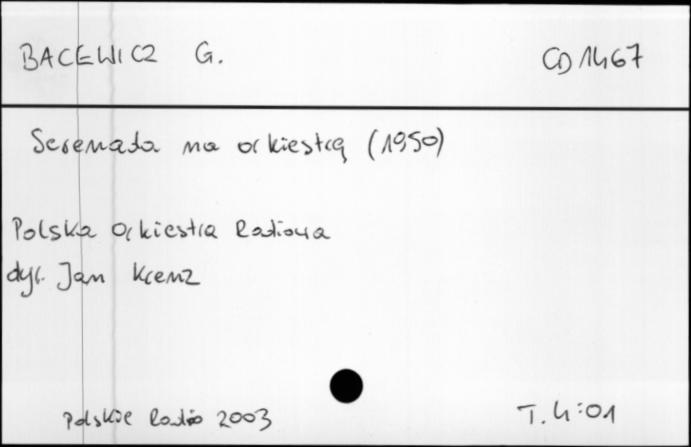 BACEWICZ G. CD 1467
Serenada na orkiestrę (1950)
Polska Orkiestra Radiowa
dyr. Jan Krenz
Polskie Radio 2003 T. 4:01